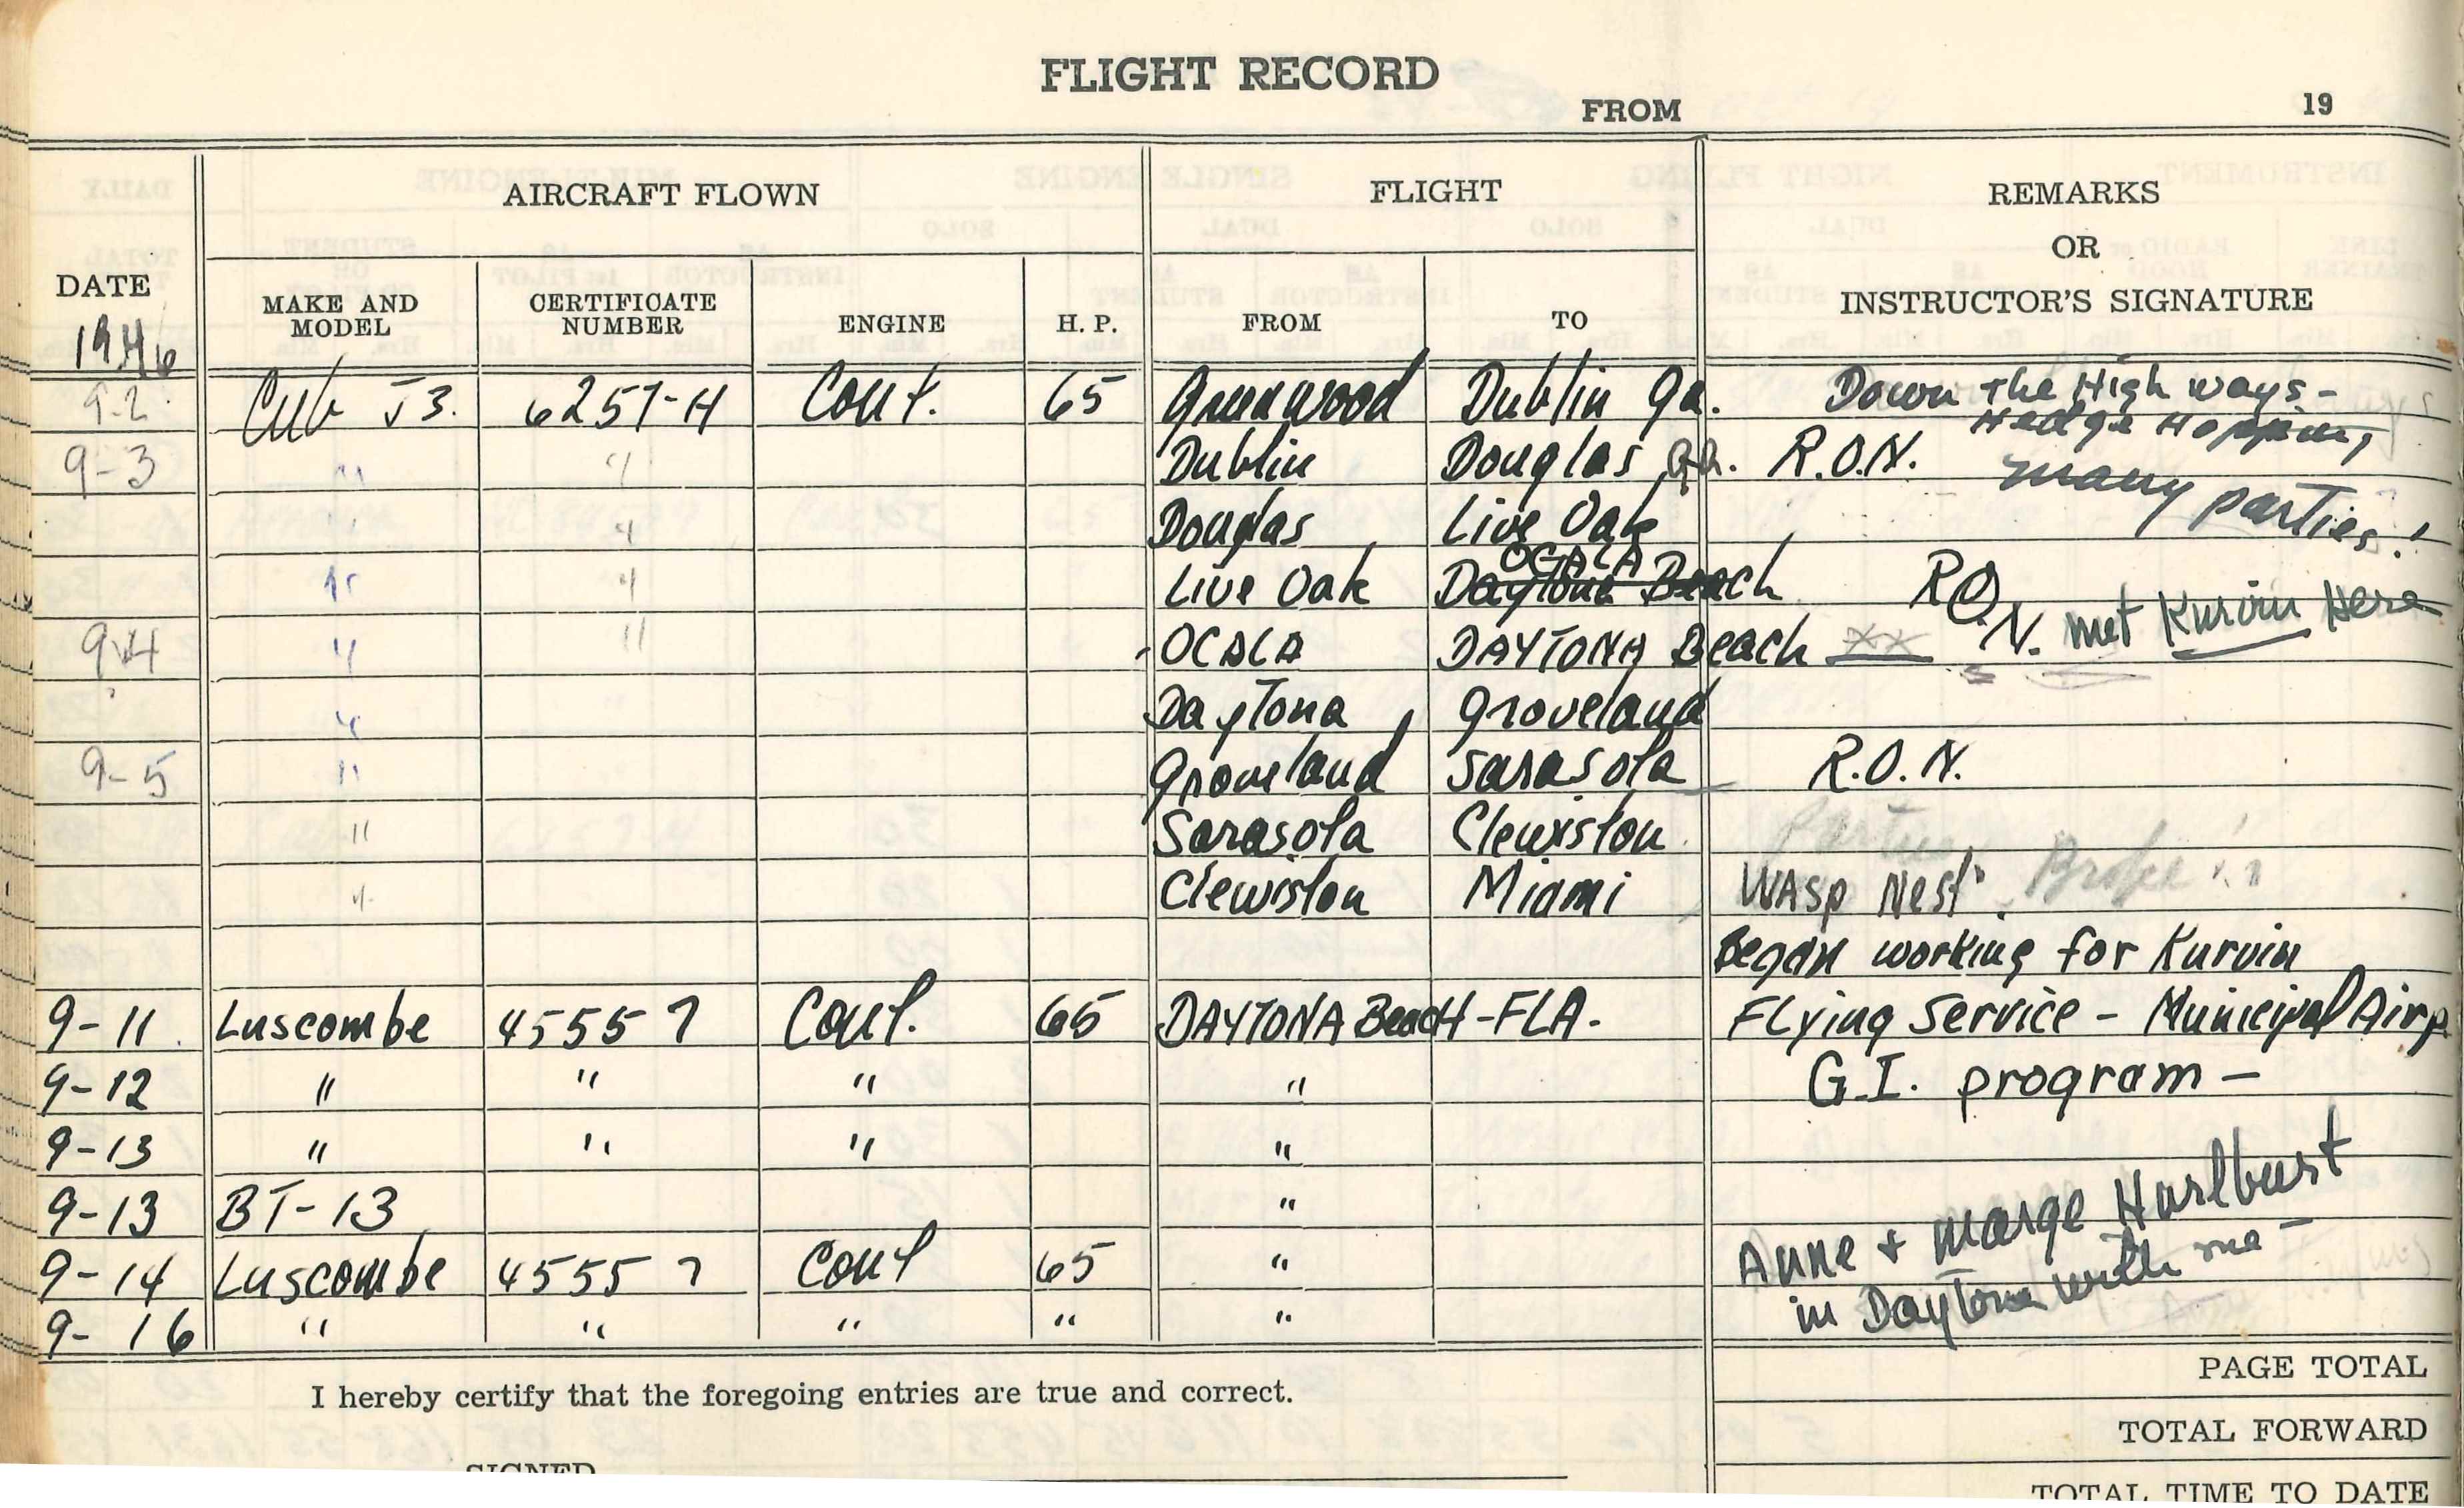 FLIGHT RECORD
FROM 19
AIRCRAFT FLOWN FLIGHT REMARKS
OR
INSTRUCTOR'S SIGNATURE
DATE MAKE AND MODEL CERTIFICATE NUMBER ENGINE H. P. FROM TO
1946
9-2 Cub J3. 6257-H Cont. 65 Greenwood Dublin Ga. Down the High ways -
Hedge Hopping
9-3 " " Dublin Douglas Ga. R.O.N. many parties!
" " Douglas Live Oak
" " Live Oak Daytona Beach OCALA R.O.N. met Kurvin Here
9-4 " " OCALA DAYTONA Beach XX
" Daytona Groveland
9-5 " Groveland Sarasota R.O.N.
" Sarasota Clewiston Parties Broke
" Clewiston Miami WASp Nest.
Began working for Kurvin
9-11 Luscombe 45557 Cont. 65 DAYTONA BeacH-FLA. FLying Service - Municipal Airp
9-12 " " " " G.I. program -
9-13 " " " "
9-13 BT-13 "
9-14 Luscombe 45557 Cont 65 " Anne + Marge Hurlburt
9-16 " " " " " in Daytona with me -
PAGE TOTAL
I hereby certify that the foregoing entries are true and correct.
TOTAL FORWARD
SIGNED
TOTAL TIME TO DATE